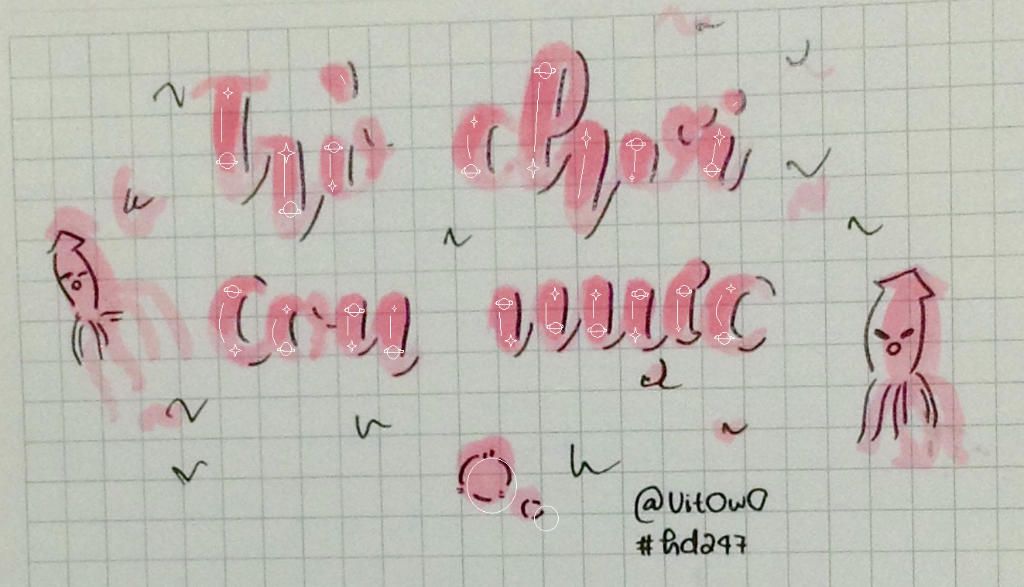 Trò chơi
con mực
@UitOwO
#hd247